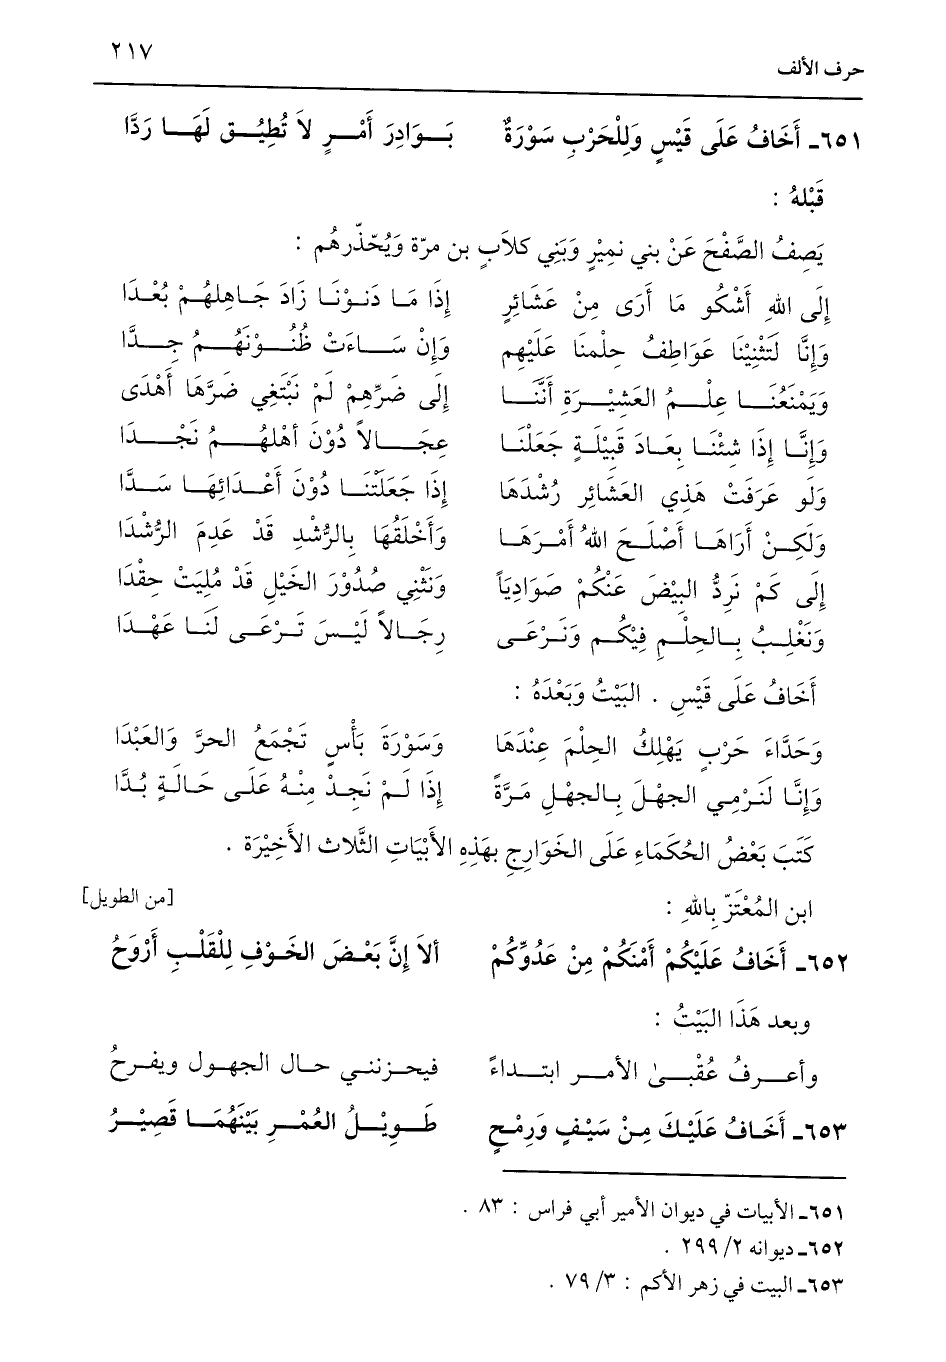 ٢١٧
حرف الألف
٦٥١ـ أَخَافُ عَلَى قَيْسٍ وَلِلْحَرْبِ سَوْرَةٌ بَـوَادِرَ أَمْـرٍ لاَ تُطِيْـق لَهَـا رَدَّا
قَبْلهُ :
يَصِفُ الصَّفْحَ عَنْ بني نميْرٍ وَبَنِي كلاَبٍ بن مرّة وَيُحّذّرهُم :
إِلَى اللهِ أَشْكُو مَا أَرَى مِنْ عَشَائِرٍ إِذَا مَا دَنَوْنَا زَادَ جَاهِلهُمْ بُعْدَا
وَإِنَّا لَتَثْنِيْنَا عَوَاطِفُ حِلْمنَا عَلَيْهِم وَإِنْ سَاءَتْ ظُنُوْنَهُمُ جِدَّا
وَيَمْنَعُنَا عِلْمُ العَشِيْرَةِ أَنَّنَا إِلَى ضَرِّهِمْ لَمْ نَبْتَغِي ضَرَّهَا أَهْدَى
وَإِنَّا إِذَا شِئْنَا بِعَادَ قَبِيْلَةٍ جَعَلْنَا عِجَالاً دُوْنَ أهْلهُمُ نَجْدَا
وَلَو عَرَفَتْ هَذِي العَشَائر رُشْدَهَا إِذَا جَعَلَتْنَا دُوْنَ أَعْدَائِهَا سَدَّا
وَلَكِنْ أَرَاهَا أَصْلَحَ اللهُ أَمْرَهَا وَأَخْلَقُهَا بِالرُّشْدِ قَدْ عَدِمَ الرُّشْدَا
إِلَى كَمْ نَرِدُّ البِيْضَ عَنْكُمْ صَوَادِيَاً وَنَثْنِي صُدُوْرَ الخَيْلِ قَدْ مُلِيَتْ حِقْدَا
وَنَغْلِبُ بِالحِلْمِ فِيْكُم وَنَرْعَى رِجَالاً لَيْسَ تَرْعَى لَنَا عَهْدَا
أَخَافُ عَلَى قَيْسٍ . البَيْتُ وَبَعْدَهُ :
وَحَدَّاءَ حَرْبٍ يَهْلِكُ الحِلْمَ عِنْدَهَا وَسَوْرَةَ بَأْسٍ تَجْمَعُ الحرَّ وَالعَبْدَا
وَإِنَّا لَنَرْمِي الجهْلَ بِالجهْلِ مَرَّةً إِذَا لَمْ نَجِدْ مِنْهُ عَلَى حَالَةٍ بُدَّا
كَتَبَ بَعْضُ الحُكَمَاءِ عَلَى الخوَارِجِ بهَذِهِ الأَبْيَاتِ الثَّلاث الأَخِيْرَة .
ابن المُعْتَزّ بِاللهِ : [من الطويل]
٦٥٢ـ أَخَافُ عَلَيْكُمْ أَمْنَكُمْ مِنْ عَدُوِّكُمْ ألاَ إِنَّ بَعْضَ الخَوْفِ لِلْقَلْبِ أَرْوَحُ
وبعد هَذَا البَيْتُ :
وأعرفُ عُقْبىٰ الأمر ابتداءً فيحزنني حال الجهول ويفرحُ
٦٥٣ـ أَخَافُ عَلَيْكَ مِنْ سَيْفٍ وَرِمْحٍ طَوِيْلُ العُمْرِ بَيْنَهُمَا قَصِيْرُ
٦٥١ـ الأبيات في ديوان الأمير أبي فراس : ٨٣ .
٦٥٢ـ ديوانه ٢/ ٢٩٩ .
٦٥٣ـ البيت في زهر الأكم : ٣/ ٧٩ .